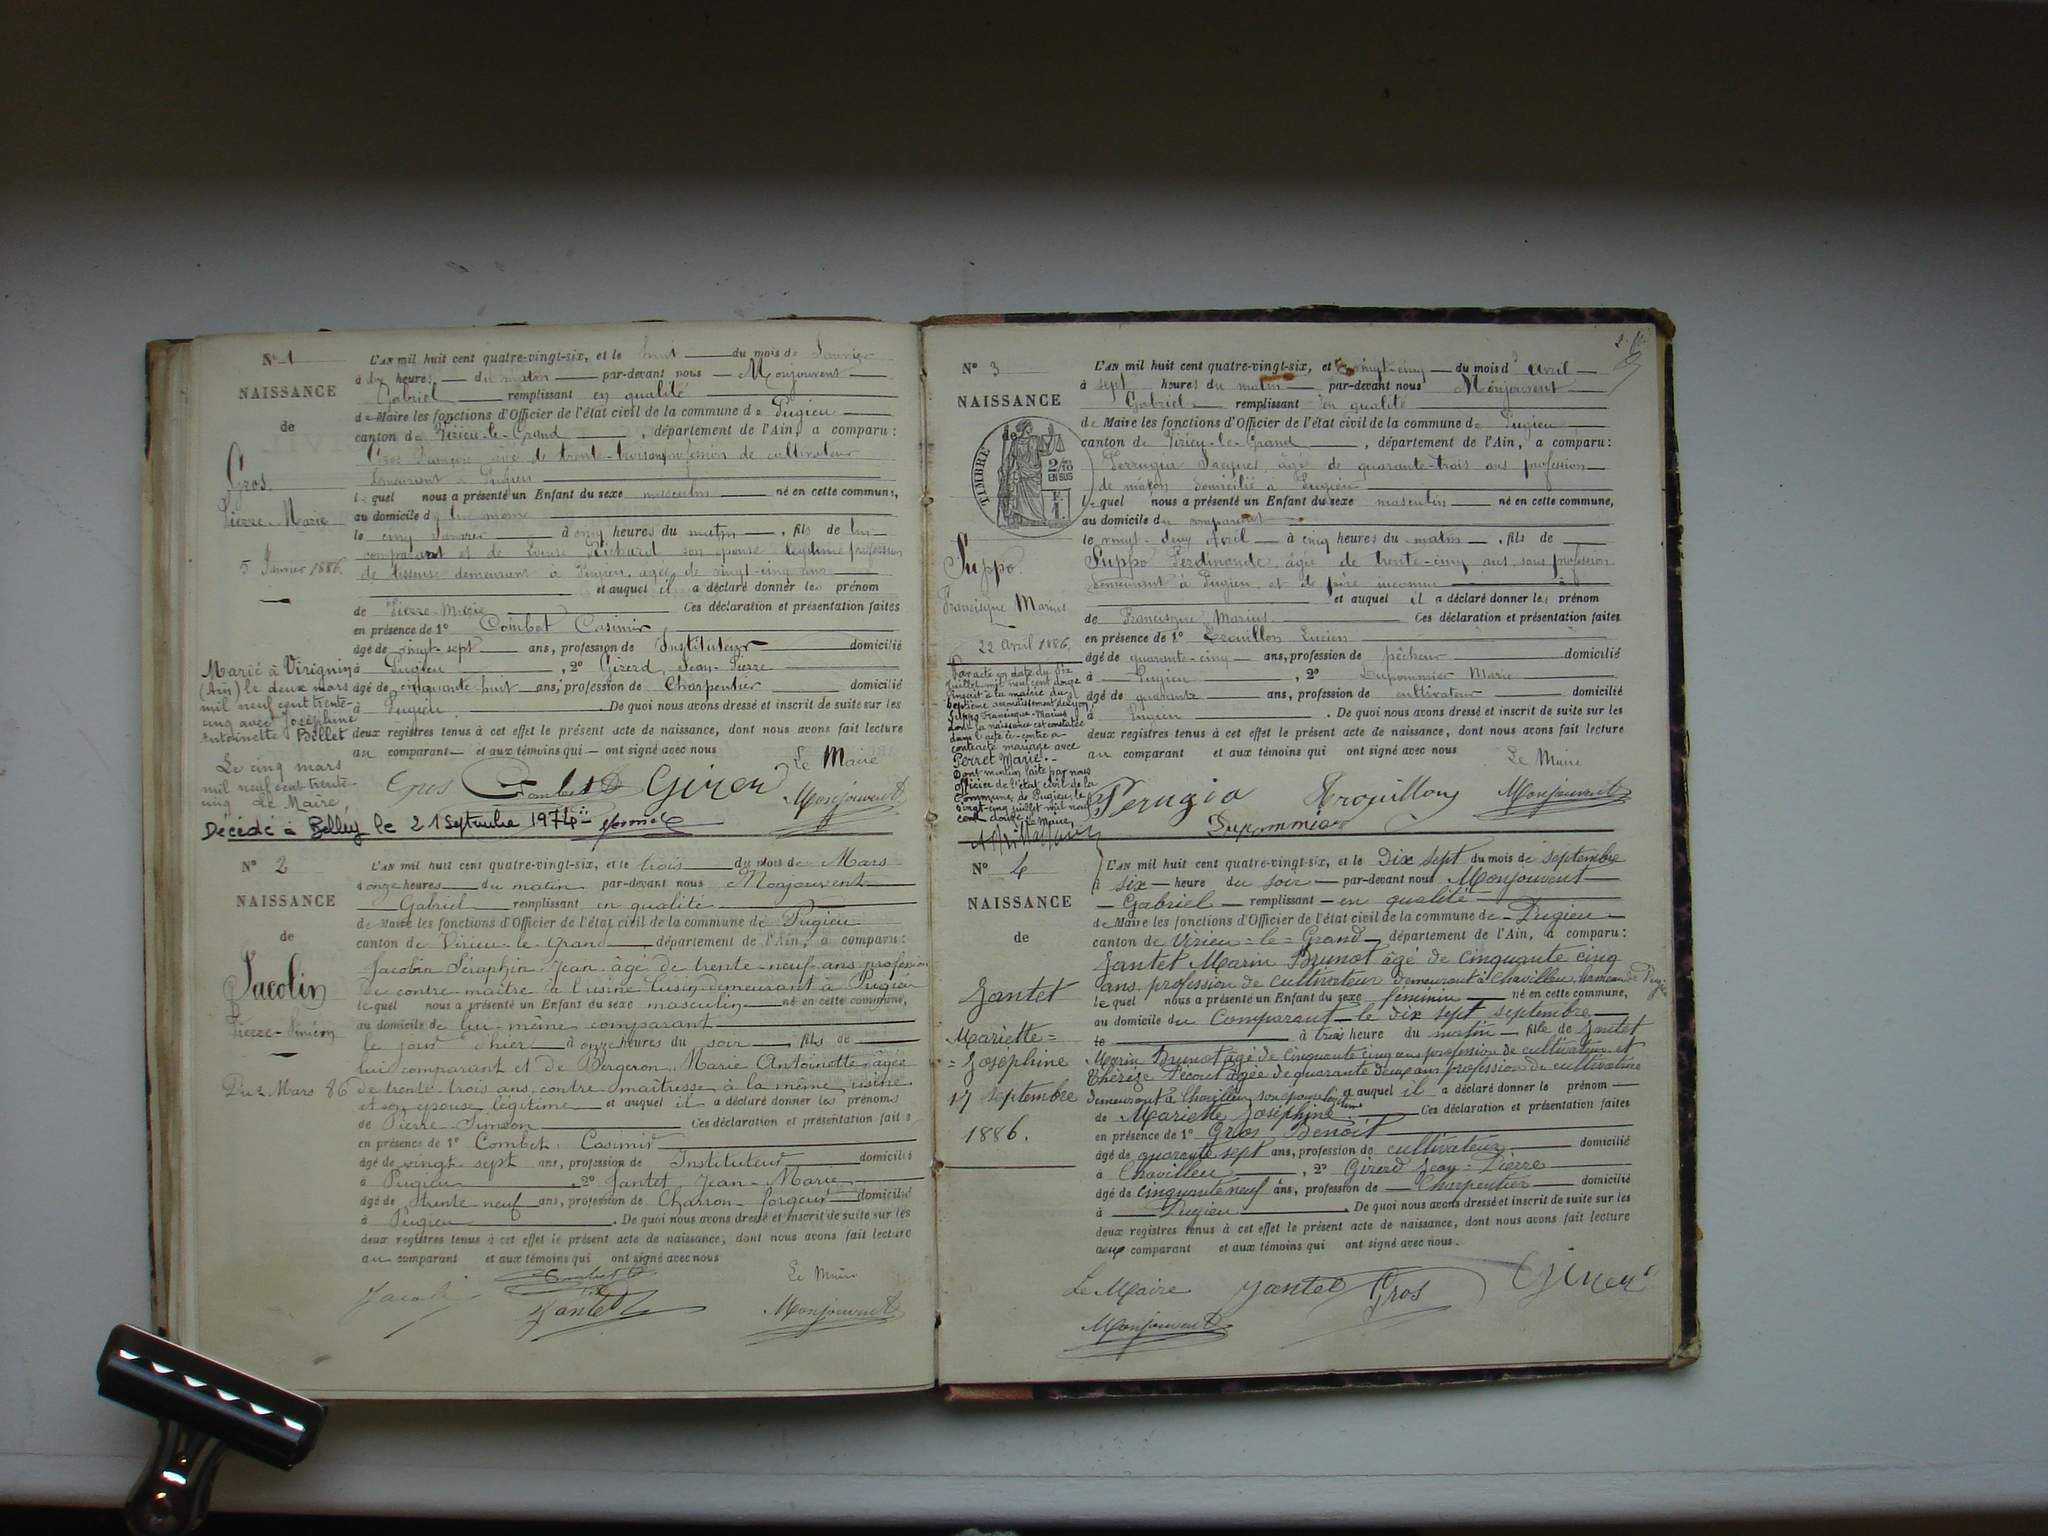 N° 1
NAISSANCE
de
Gros
Pierre-Marie
5 Janvier 1886.
Marié à Virignin
(Ain) le deux mars
mil neuf cent trente-
cinq avec Joséphine
Antoinette Billet
Le cinq mars
mil neuf cent trente-
cinq Le Maire,
Décédé à Belley le 21 Septembre 1974
L'AN mil huit cent quatre-vingt-six, et le huit du mois de Janvier
à dix heures du matin par-devant nous Monjouvent
Gabriel remplissant en qualité
de Maire les fonctions d'Officier de l'état civil de la commune de Pugieu
canton de Virieu-le-Grand, département de l'Ain, a comparu :
Gros âgé de trente-trois ans profession de cultivateur
demeurant à Pugieu
lequel nous a présenté un Enfant du sexe masculin né en cette commune,
au domicile de lui même
le cinq Janvier à cinq heures du matin, fils de lui
comparant et de Louise Richard son épouse légitime profession
de tisseuse demeurant à Pugieu, âgée de vingt-cinq ans
et auquel il a déclaré donner les prénom
de Pierre-Marie Ces déclaration et présentation faites
en présence de 1° Combet Casimir
âgé de vingt-sept ans, profession de Instituteur domicilié
à Pugieu, 2° Girerd Jean-Pierre
âgé de cinquante huit ans, profession de Charpentier domicilié
à Pugieu. De quoi nous avons dressé et inscrit de suite sur les
deux registres tenus à cet effet le présent acte de naissance, dont nous avons fait lecture
au comparant et aux témoins qui ont signé avec nous
Le Maire
Gros Combet Girerd Monjouvent
N° 2
NAISSANCE
de
Jacolin
Pierre-Siméon
Du 2 Mars 86
L'AN mil huit cent quatre-vingt-six, et le trois du mois de Mars
à onze heures du matin par-devant nous Monjouvent
Gabriel remplissant en qualité
de Maire les fonctions d'Officier de l'état civil de la commune de Pugieu
canton de Virieu-le-Grand, département de l'Ain, a comparu :
Jacolin Séraphin Jean âgé de trente-neuf ans profession
de contre-maître à l'usine demeurant à Pugieu
lequel nous a présenté un Enfant du sexe masculin né en cette commune,
au domicile de lui-même comparant
le jour d'hier à onze heures du soir, fils de
lui comparant et de Bergeron Marie Antoinette âgée
de trente-trois ans, contre maîtresse à la même usine
et son épouse légitime et auquel il a déclaré donner les prénoms
de Pierre-Siméon Ces déclaration et présentation faites
en présence de 1° Combet Casimir
âgé de vingt-sept ans, profession de Instituteur domicilié
à Pugieu, 2° Jantet Jean-Marie
âgé de trente neuf ans, profession de Charron-forgeur domicilié
à Pugieu. De quoi nous avons dressé et inscrit de suite sur les
deux registres tenus à cet effet le présent acte de naissance, dont nous avons fait lecture
au comparant et aux témoins qui ont signé avec nous
Le Maire
Jacolin Combet Jantet Monjouvent
N° 3
NAISSANCE
de
TIMBRE
2/10
EN SUS
Suppo
Francisque Marius
22 Avril 1886.
Par acte en date du six
Juillet mil neuf cent douze
inscrit à la mairie du
septième arrondissement de Lyon
Suppo Francisque-Marius
dont la naissance est constatée
dans l'acte ci-contre a
contracté mariage avec
Perret Marie.
Dont mention faite par nous
Officier de l'état civil de la
commune de Pugieu le
vingt-cinq juillet mil neuf
cent douze. Le Maire,
L'AN mil huit cent quatre-vingt-six, et le vingt-cinq du mois d'Avril
à sept heures du matin par-devant nous Monjouvent
Gabriel remplissant en qualité
de Maire les fonctions d'Officier de l'état civil de la commune de Pugieu
canton de Virieu-le-Grand, département de l'Ain, a comparu :
Perrugia Jacques, âgé de quarante-trois ans profession
de maçon domicilié à Pugieu
lequel nous a présenté un Enfant du sexe masculin né en cette commune,
au domicile du comparant
le vingt-deux Avril à cinq heures du matin, fils de
Suppo Ferdinande âgée de trente-cinq ans, sans profession
demeurant à Pugieu et de père inconnu
et auquel il a déclaré donner les prénom
de Francisque Marius Ces déclaration et présentation faites
en présence de 1° Trouillon Lucien
âgé de quarante-cinq ans, profession de pêcheur domicilié
à Pugieu, 2° Dupommier Marie
âgé de quarante ans, profession de cultivateur domicilié
à Pugieu. De quoi nous avons dressé et inscrit de suite sur les
deux registres tenus à cet effet le présent acte de naissance, dont nous avons fait lecture
au comparant et aux témoins qui ont signé avec nous
Le Maire
Perugia Trouillon Monjouvent
Dupommier
N° 4
NAISSANCE
de
Jantet
Mariette=
=Joséphine
17 septembre
1886.
L'AN mil huit cent quatre-vingt-six, et le Dix sept du mois de septembre
à six heure du soir par-devant nous Monjouvent
Gabriel remplissant en qualité
de Maire les fonctions d'Officier de l'état civil de la commune de Pugieu
canton de Virieu=le=Grand, département de l'Ain, a comparu :
Jantet Marin Brunot âgé de cinquante cinq
ans profession de cultivateur demeurant à Chavilleu, hameau de Pugieu
lequel nous a présenté un Enfant du sexe féminin né en cette commune,
au domicile du Comparant le dix sept septembre
le à trois heure du matin fille de Jantet
Marin Brunot âgé de cinquante cinq ans profession de cultivateur et
Thérèze Décout âgée de quarante deux ans profession de cultivatrice
demeurant à Chavilleu, son épouse légitime et auquel il a déclaré donner le prénom
de Mariette Joséphine Ces déclaration et présentation faites
en présence de 1° Gros Benoit
âgé de quarante sept ans, profession de cultivateur domicilié
à Chavilleu, 2° Girerd Jean=Pierre
âgé de cinquante neuf ans, profession de Charpentier domicilié
à Pugieu. De quoi nous avons dressé et inscrit de suite sur les
deux registres tenus à cet effet le présent acte de naissance, dont nous avons fait lecture
aux comparant et aux témoins qui ont signé avec nous.
Le Maire Jantet Gros Girerd
Monjouvent